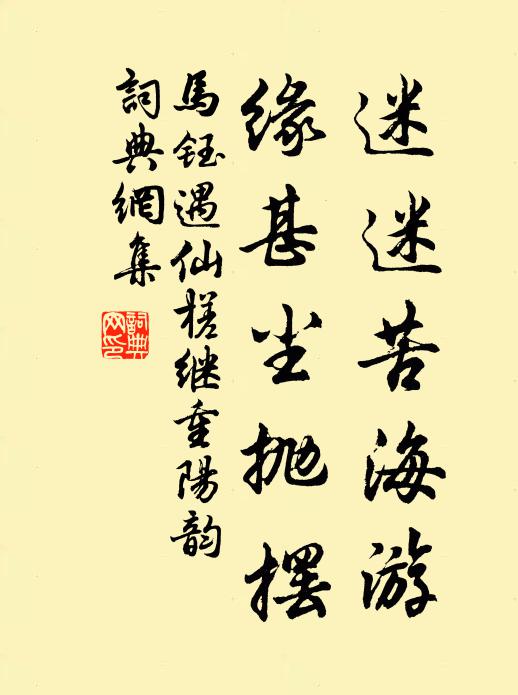 迷迷苦海游
缘甚尘抛摆
馬鈺遇仙槎继重陽韵
詞典網集
詞典网印